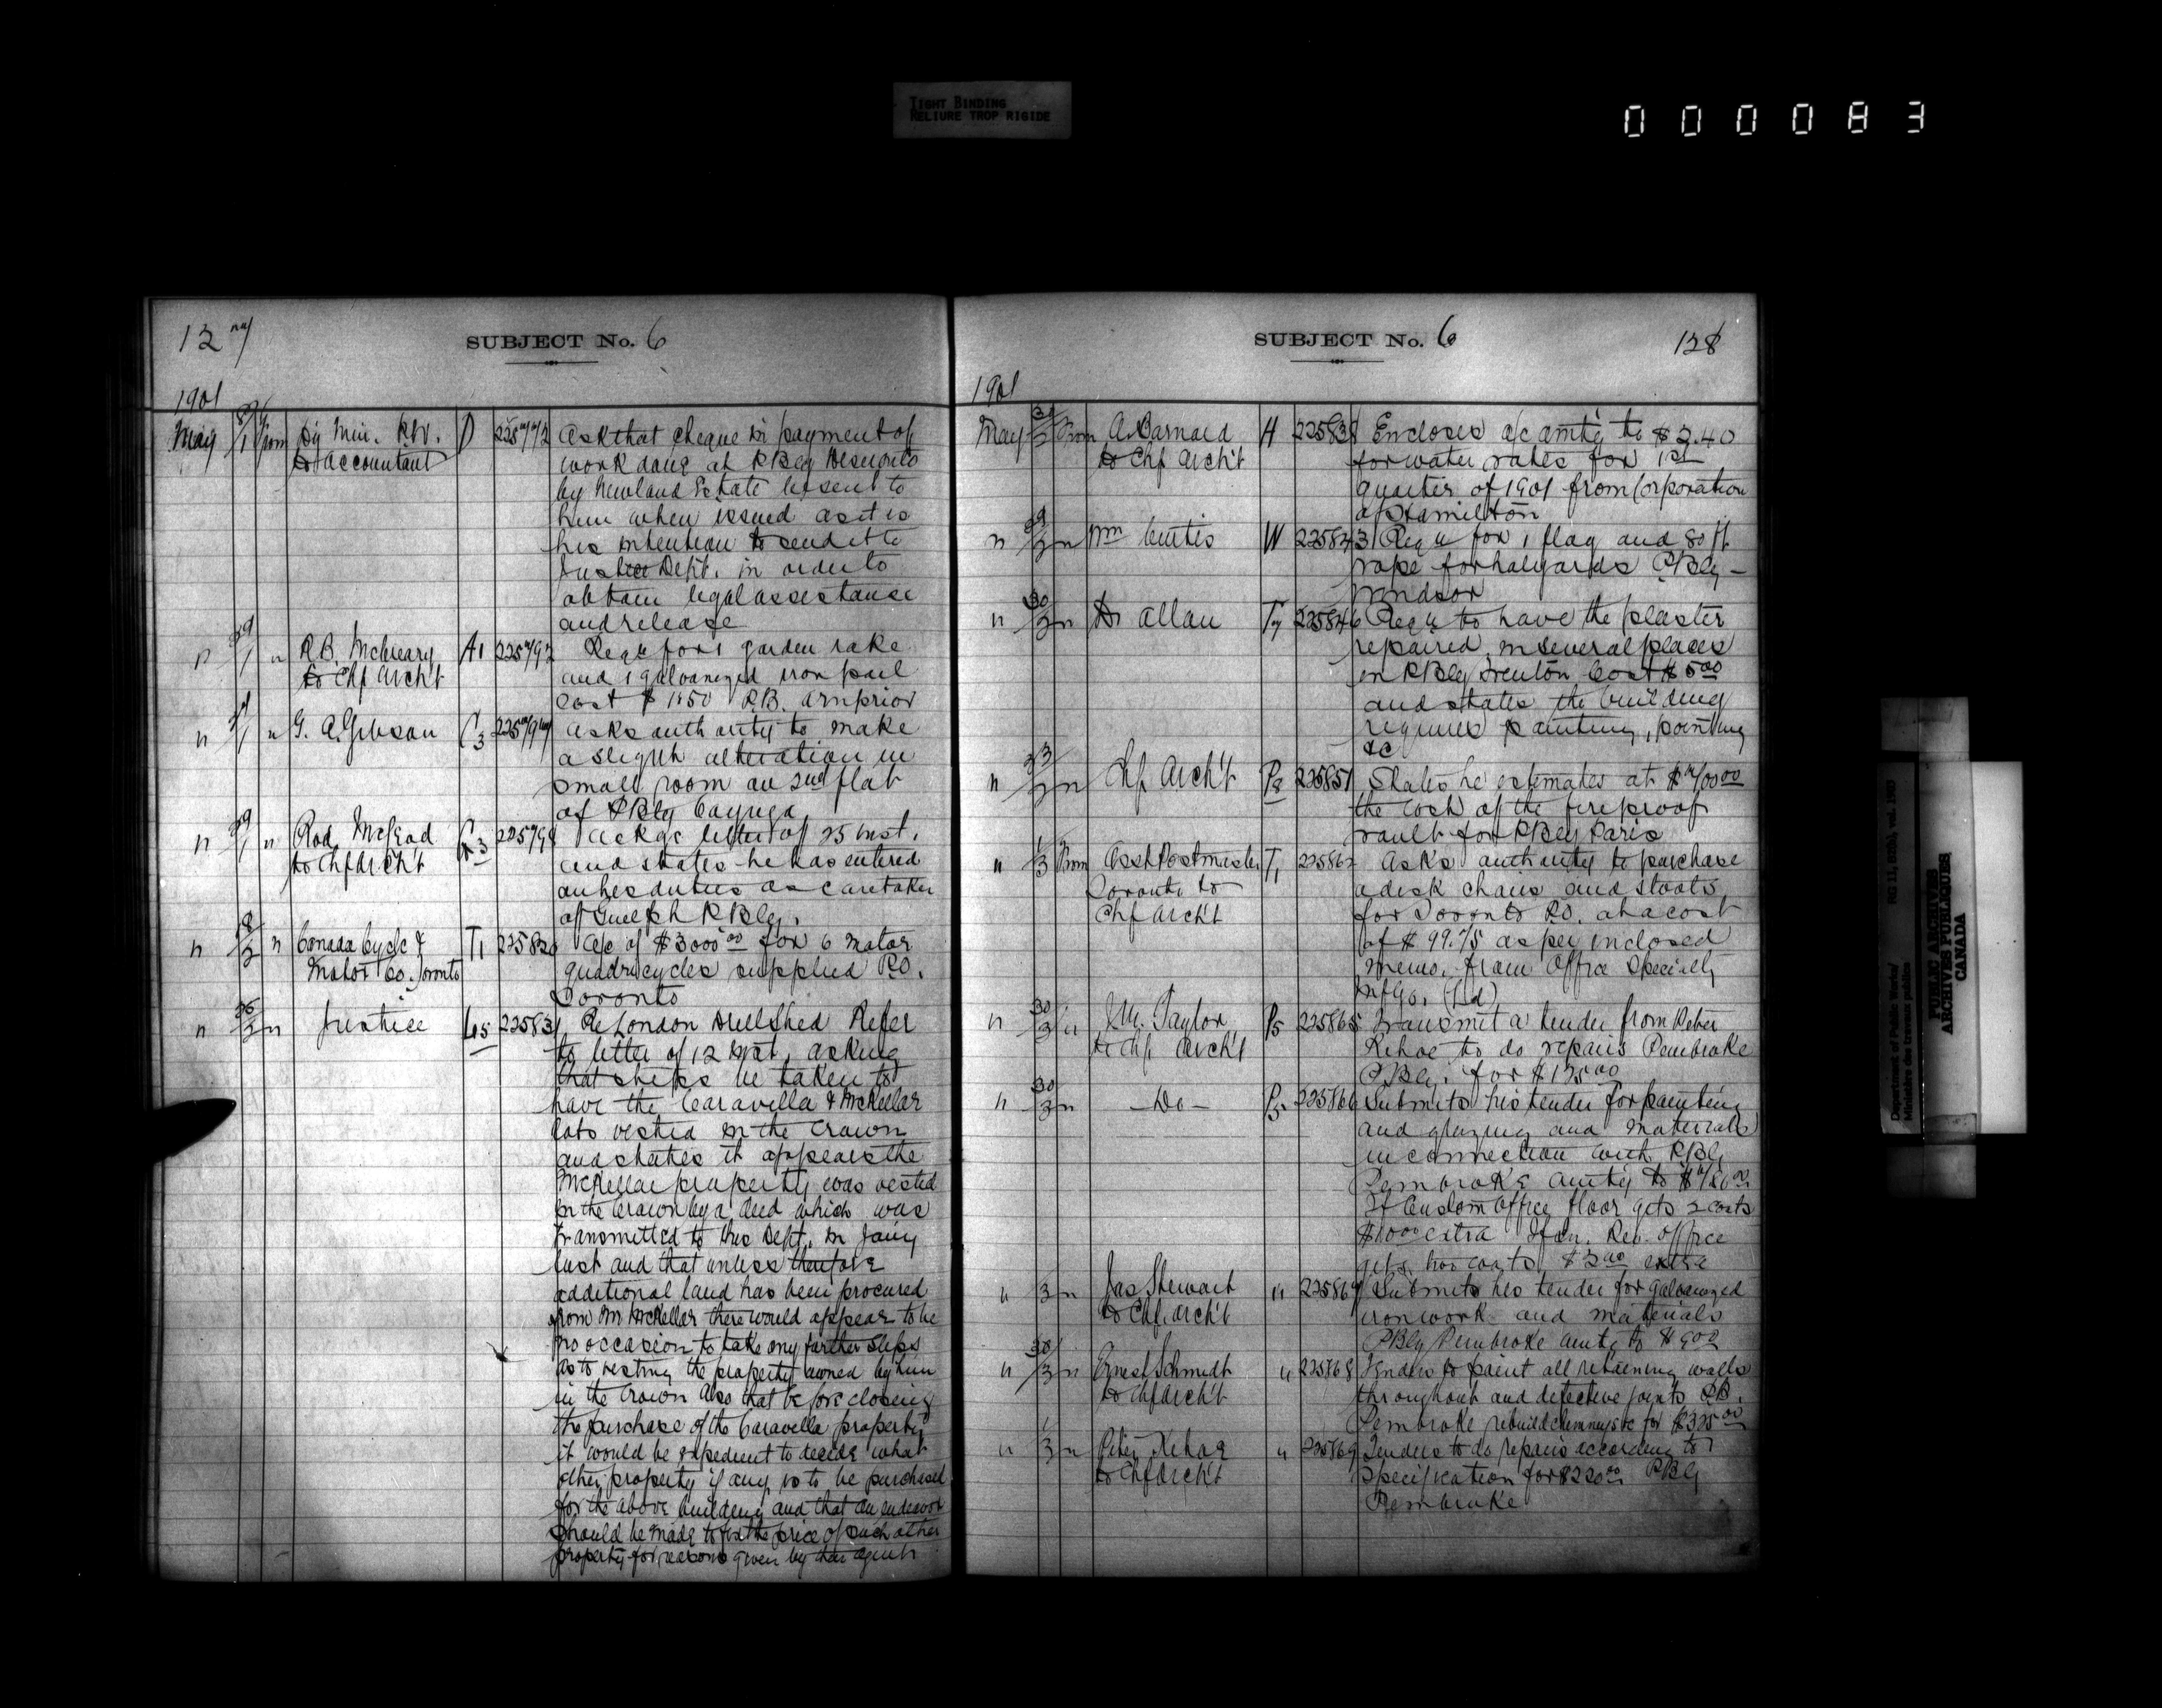 TIGHT BINDING
RELIURE TROP RIGIDE
000083
127
SUBJECT No. 6
1901
May 27/1 from Dy Min. P.W. D 225772 Ask that cheque in payment of
to Accountant work done at P Bldg Deseronto
by Newland Estate be sent to
him when issued as it is
his intention to send it to
Justice Dept. in order to
obtain legal assistance
and release
" 29/1 " R.B. McCreary A1 225792 Req n for 1 garden rake
to Chf Arch't and 1 galvanized iron pail
cost $1.50 P.B. Arnprior
" /1 " G. A. Gibson C3 225794 Asks authority to make
a slight alteration in
small room on 2nd flat
of P Bldg Cayuga
" 29/1 " Rod. McLeod G3 22579 Ackgs letter of 25 inst.
to Chf Arch't and states he has entered
on his duties as caretaker
of Guelph P Bldg.
" 18/2 " Canada Cycle & T1 22582 A/c of $3000 00 for 6 motor
Motor Co. Toronto quadricycles supplied P.O.
Toronto
" 26/2 " Justice L5 22583 Re London Drill Shed Refer
to letter of 12 inst. asking
that steps be taken to
have the Caravella & McKellar
lots vested in the Crown
and states it appears the
McKellar property was vested
in the Crown by a deed which was
transmitted to this Dept. in Jany
last and that unless therefore
additional land has been procured
from Mr McKellar there would appear to be
no occasion to take any further steps
as to vesting the property owned by him
in the Crown Also that before closing
the purchase of the Caravella property
it would be expedient to decide what
other property if any is to be purchased
for the above building and that an endeavor
should be made to fix the price of such other
property for reasons given by their agents
SUBJECT No. 6
128
1901
May 31/2 From A. Barnard H 22583 Encloses a/c amtg to $2.40
to Chf Arch't for water rates for 1st
quarter of 1901 from Corporation
of Hamilton
" 29/2 " Wm Curtis W 225843 Req n for 1 flag and 80 ft
rope for halyards P Bldg
Windsor
" 30/2 " Dr Allan T7 225846 Req n to have the plaster
repaired in several places
in P Bldg Trenton Cost $5 00
and states the building
requires painting, pointing
&c
" 23/2 " Chf Arch't P8 225851 States he estimates at $700 00
the cost of the fireproof
vault for P Bldg Paris
" 1/3 From Asst Postmaster T1 22586 Asks authority to purchase
Toronto to a desk chairs and stools
Chf Arch't for Toronto P.O. at a cost
of $99.75 as per inclosed
memo. from Office Specialty
Mfg Co. (Ltd)
" 30/3 " J.M. Taylor P5 225865 Transmit a tender from Peter
to Chf Arch't Kehoe to do repairs Pembroke
P Bldg. for $125 00
" 30/3 " — Do — P5 225866 Submits his tender for painting
and glazing and materials
in connection with P Bldg
Pembroke amtg to
If Custom Office floor gets 2 coats
$1 00 extra If In. Rev. office
gets two coats $2 00 extra
" 3 " Jas Stewart " 225867 Submits his tender for galvanized
to Chf Arch't iron work and materials
P Bldg Pembroke amtg to $9 00
" 30/3 " Ernest Schmidt " 225868 Tenders to paint all retaining walls
to Chf Arch't throughout and defective joints P.B.
Pembroke rebuild chimneys &c for $325 00
" 1/3 " Peter Kehoe " 225869 Tenders to do repairs according to
to Chf Arch't specification for $220 00 P Bldg
Pembroke
Department of Public Works/
Ministère des travaux publics
RG 11, B2(b), vol. 1985
PUBLIC ARCHIVES
ARCHIVES PUBLIQUES
CANADA